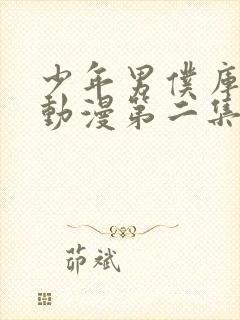 少年男僕庫
動漫第二集
茆斌